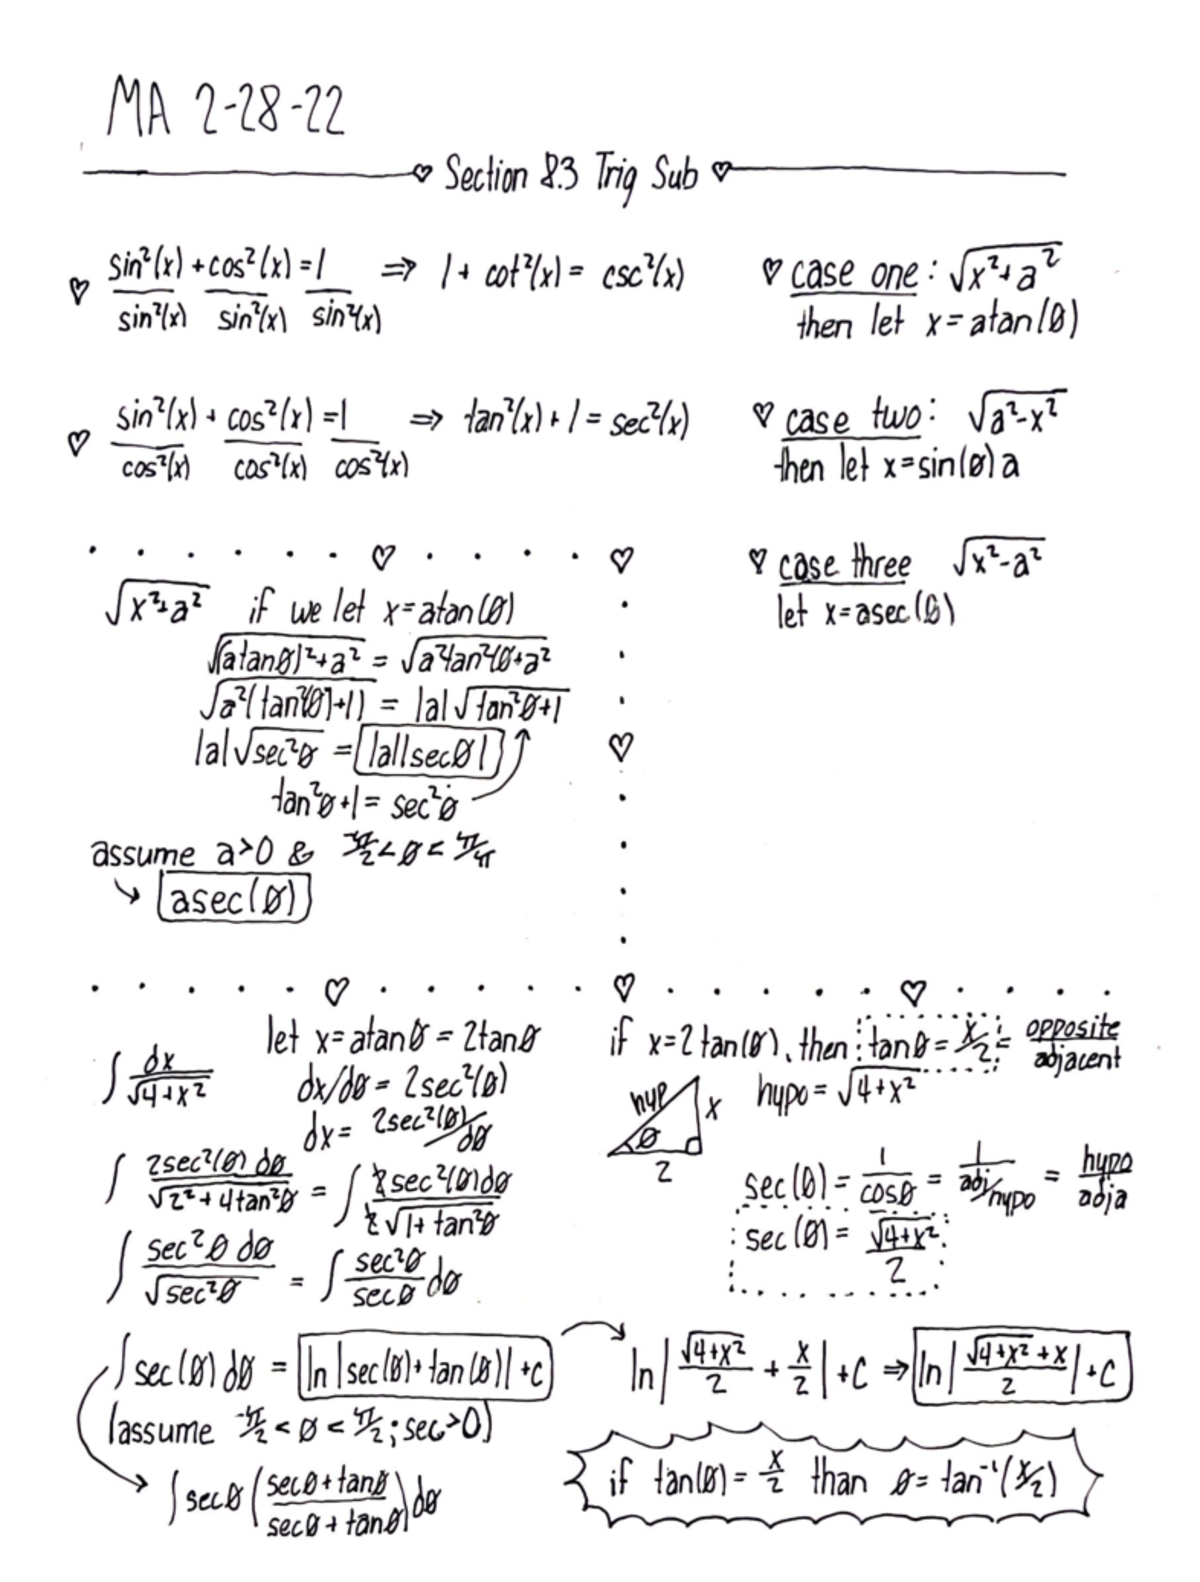 MA 2-28-22
♡ Section 8.3 Trig Sub ♡
♡ sin²(x)/sin²(x) + cos²(x)/sin²(x) = 1/sin²(x) ⇒ 1 + cot²(x) = csc²(x)
♡ case one: √(x²+a²)
then let x = atan(θ)
♡ sin²(x)/cos²(x) + cos²(x)/cos²(x) = 1/cos²(x) ⇒ tan²(x) + 1 = sec²(x)
♡ case two: √(a²-x²)
then let x = sin(θ)a
♡ case three √(x²-a²)
let x = asec(θ)
√(x²+a²) if we let x = atan(θ)
√((atanθ)²+a²) = √(a²tan²(θ)+a²)
√(a²(tan²(θ)+1)) = |a|√(tan²θ+1)
|a|√(sec²θ) = |a||secθ|
tan²θ+1 = sec²θ
assume a>0 & -π/2 < θ < π/π
↘ asec(θ)
∫ dx/√(4+x²)
let x = atanθ = 2tanθ
dx/dθ = 2sec²(θ)
dx = 2sec²(θ)/dθ
∫ 2sec²(θ) dθ/√(2²+4tan²θ) = ∫ 2sec²(θ)dθ/2√(1+tan²θ)
∫ sec²θ dθ/√(sec²θ) = ∫ sec²θ/secθ dθ
∫ sec(θ) dθ = ln|sec(θ)+tan(θ)|+C
(assume -π/2 < θ < π/2; sec>0)
∫ secθ (secθ+tanθ/secθ+tanθ) dθ
if x = 2tan(θ), then tanθ = x/2 = opposite/adjacent
hyp x θ 2
hypo = √(4+x²)
sec(θ) = 1/cosθ = 1/adj/hypo = hypo/adja
sec(θ) = √(4+x²)/2
ln|√(4+x²)/2 + x/2|+C ⇒ ln|√(4+x²)+x/2|+C
if tan(θ) = x/2 than θ = tan⁻¹(x/2)